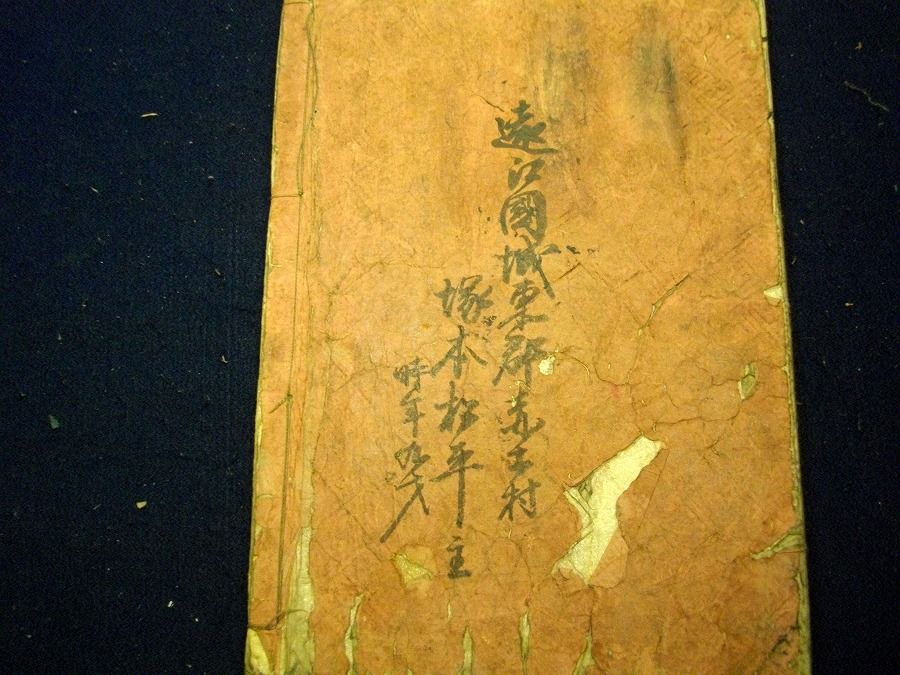 遠江國城東郡赤土村
塚本松平主
時年九才